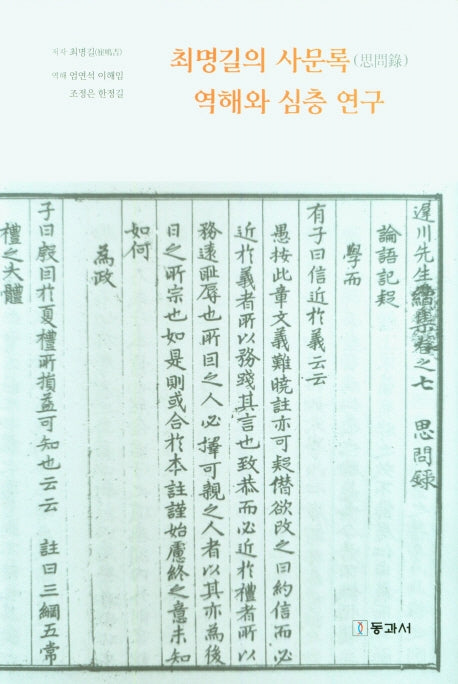 저자 최명길(崔鳴吉)
역해 엄연석 이해임
조정은 한정길
최명길의 사문록(思問錄)
역해와 심층 연구
遲川先生 之七 思問錄
論語記疑
學而
有子曰信近於義云云
愚按此章文義難曉註亦可疑僣欲改之曰約信而必
近於義者所以務踐其言也致恭而必近於禮者所以
務遠恥辱也所因之人必擇可親之人者以其亦為後
日之所宗也如是則或合於本註謹始慮終之意未知
如何
為政
子曰殷因於夏禮所損益可知也云云 註曰三綱五常
禮之大體
동과서